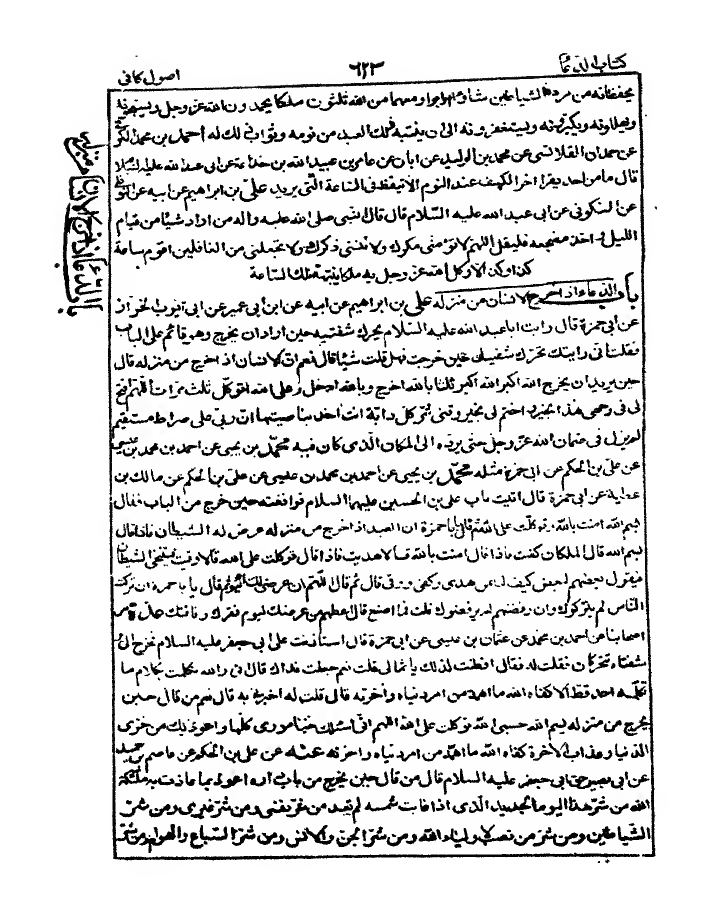 كتاب الدعاء
٦٢٣
اصول كافى
باب الدعاء اذا خرج الانسان من منزله
يحفظانه من مردة الشياطين شاؤا او ابوا ومعهما من الله ثلثون ملكا يحمدون الله عز وجل ويسبحونه
ويهللونه ويكبرونه ويستغفرونه الى ان ينتبه ذلك العبد من نومه وثواب ذلك له أحمد بن محمد الكوفى
عن حمدان القلانسى عن محمد بن الوليد عن ابان عن عامر بن عبد الله بن جذاعة عن ابى عبد الله عليه السلام
قال ما من احد يقرا اخر الكهف عند النوم الا تيقظ فى الساعة التى يريد على بن ابراهيم عن ابيه عن النوفلى
عن السكونى عن ابى عبد الله عليه السلام قال قال النبى صلى الله عليه واله من اراد شيئا من قيام
الليل واخذ مضجعه فليقل اللهم لا تؤمنى مكرك ولا تنسنى ذكرك ولا تجعلنى من الغافلين اقوم ساعة
كذا وكذا الا وكل الله عز وجل به ملكا ينبهه تلك الساعة
باب الدعاء اذا خرج الانسان من منزله على بن ابراهيم عن ابيه عن ابن ابى عمير عن ابى ايوب الخزاز
عن ابى حمزة قال رايت ابا عبد الله عليه السلام يحرك شفتيه حين اراد ان يخرج وهو قائم على الباب
فقلت انى رايتك تحرك شفتيك حين خرجت فهل قلت شيئا قال نعم ان الانسان اذا خرج من منزله قال
حين يريد ان يخرج الله اكبر الله اكبر ثلثا بالله اخرج وبالله ادخل وعلى الله اتوكل ثلث مرات اللهم افتح
لى فى وجهى هذا بخير واختم لى بخير وقنى شر كل دابة انت اخذ بناصيتها ان ربى على صراط مستقيم
لم يزل فى ضمان الله عز وجل حتى يرده الى المكان الذى كان فيه محمد بن يحيى عن احمد بن محمد بن عيسى
عن على بن الحكم عن ابى حمزة مثله محمد بن يحيى عن احمد بن محمد بن عيسى عن على بن الحكم عن مالك بن
عطية عن ابى حمزة قال اتيت باب على بن الحسين عليهما السلام فوافقته حين خرج من الباب فقال
بسم الله امنت بالله وتوكلت على الله ثم قال يا با حمزة ان العبد اذا خرج من منزله عرض له الشيطان فاذا قال
بسم الله قال الملكان كفيت فاذا قال امنت بالله قالا هديت فاذا قال توكلت على الله قالا وقيت فيتنحى الشيطان
فيقول بعضهم لبعض كيف لنا بمن هدى وكفى ووقى قال ثم قال اللهم ان عرضى لك اليوم ثم قال يا با حمزة ان تركت
الناس لم يتركوك وان رفضتهم لم يرفضوك قلت فما اصنع قال اعطهم من عرضك ليوم فقرك وفاقتك عدة من
اصحابنا عن احمد بن محمد عن عثمان بن عيسى عن ابى حمزة قال استاذنت على ابى جعفر عليه السلام فخرج الى
شفتاه تتحركان فقلت له فقال افطنت لذلك يا ثمالى قلت نعم جعلت فداك قال انى والله تكلمت بكلام ما
تكلم به احد قط الا كفاه الله ما اهمه من امر دنياه واخرته قال قلت له اخبرنى به قال نعم من قال حين
يخرج من منزله بسم الله حسبى الله توكلت على الله اللهم انى اسئلك خير امورى كلها واعوذ بك من خزى
الدنيا وعذاب الاخرة كفاه الله ما اهمه من امر دنياه واخرته عنه عن على بن الحكم عن عاصم بن حميد
عن ابى بصير عن ابى جعفر عليه السلام قال من قال حين يخرج من باب داره اعوذ بما عاذت به ملئكة
الله من شر هذا اليوم الجديد الذى اذا غابت شمسه لم تعد من شر نفسى ومن شر غيرى ومن شر
الشياطين ومن شر من نصب لاولياء الله ومن شر الجن والانس ومن شر السباع والهوام ومن شر